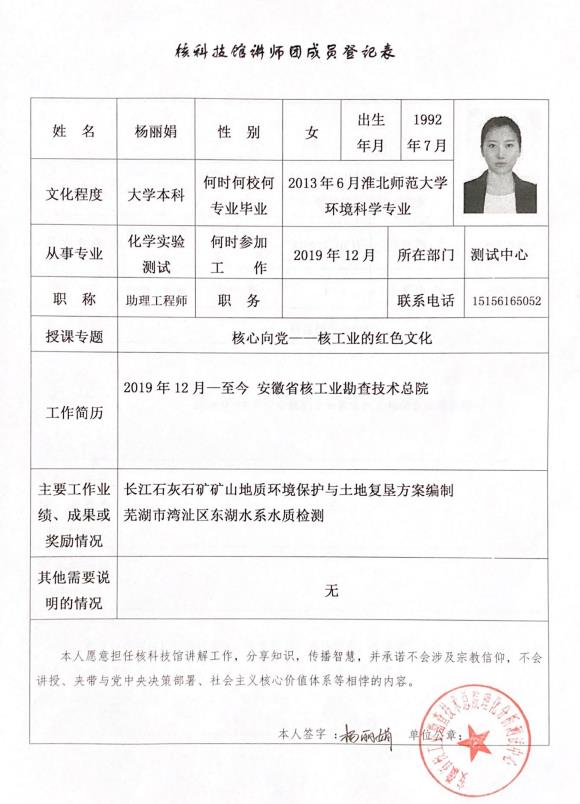 核科技馆讲师团成员登记表
姓 名 杨丽娟 性 别 女 出生年月 1992年7月
文化程度 大学本科 何时何校何专业毕业 2013年6月淮北师范大学环境科学专业
从事专业 化学实验测试 何时参加工 作 2019年12月 所在部门 测试中心
职 称 助理工程师 职 务 联系电话 15156165052
授课专题 核心向党——核工业的红色文化
工作简历 2019年12月—至今 安徽省核工业勘查技术总院
主要工作业绩、成果或奖励情况 长江石灰石矿矿山地质环境保护与土地复垦方案编制
芜湖市湾沚区东湖水系水质检测
其他需要说明的情况 无
本人愿意担任核科技馆讲解工作，分享知识，传播智慧，并承诺不会涉及宗教信仰，不会
讲授、夹带与党中央决策部署、社会主义核心价值体系等相悖的内容。
本人签字：杨丽娟 单位公章：